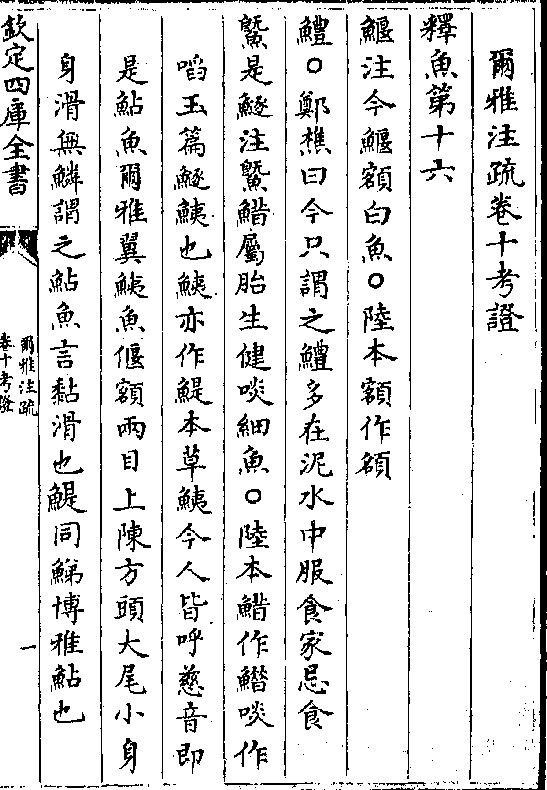 爾雅注疏卷十考證
釋魚第十六
鰋注今鰋額白魚○陸本額作頟
鱧○鄭樵曰今只謂之鱧多在泥水中服食家忌食
鱀是鱁注鱀䱜屬胎生健啖細魚○陸本䱜作鱕啖作
啗玉篇鱁鮧也鮧亦作鯷本草鮧今人皆呼慈音即
是鮎魚爾雅翼鮧魚偃額兩目上陳方頭大尾小身
身滑無鱗謂之鮎魚言黏滑也鯷同鮷博雅鮎也
欽定四庫全書
爾雅注疏
卷十考證
一